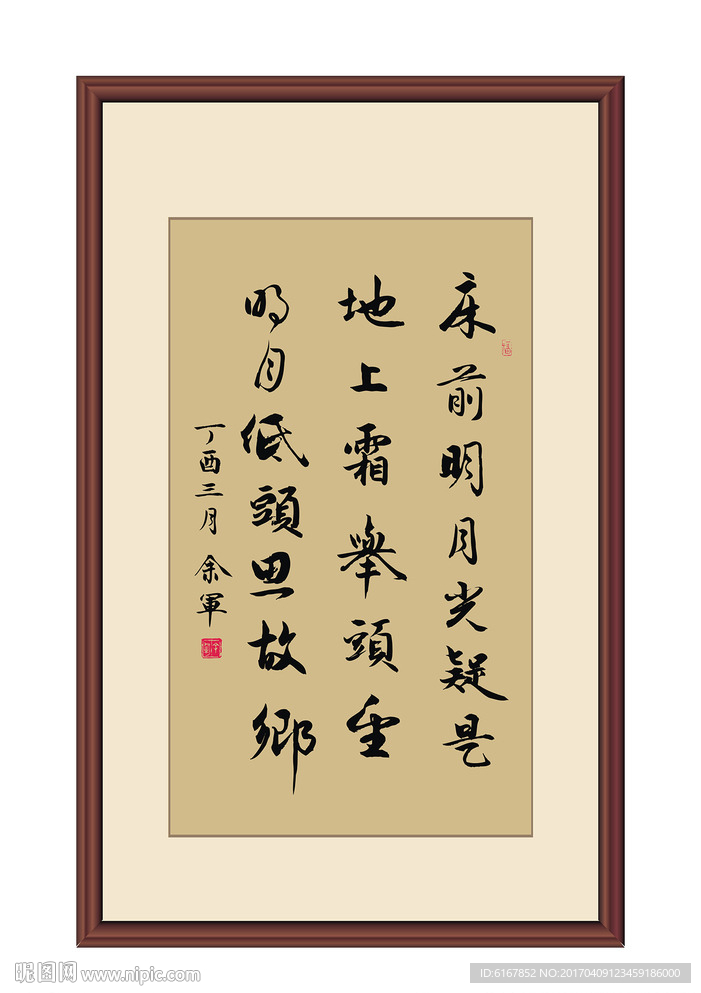 床前明月光疑是
地上霜舉頭望
明月低頭思故鄉
丁酉三月 余軍
昵图网 www.nipic.com
ID:6167852 NO:20170409123459186000